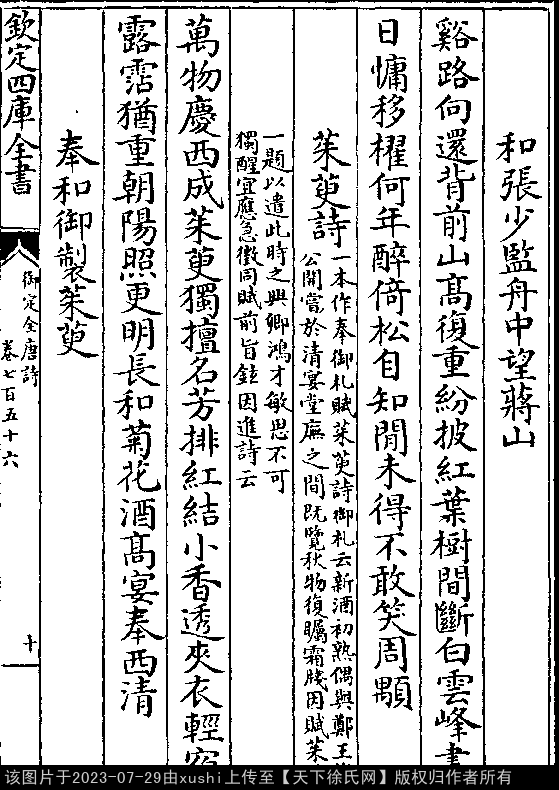 和張少監舟中望蔣山
谿路向還背前山高復重紛披紅葉樹間斷白雲峰
日慵移櫂何年醉倚松自知閒未得不敢笑周顒
茱萸詩
一本作奉御札賦茱萸詩御札云新酒初熟偶與鄭王
公開嘗於清宴堂廡之間既覽秋物復矚霜牋因賦茱
一題以遣此時之興卿鴻才敏思不可
獨醒宜應急徵同賦前旨鉉因進詩云
萬物慶西成茱萸獨擅名芳排紅結小香透夾衣輕宿
露霑猶重朝陽照更明長和菊花酒高宴奉西清
奉和御製茱萸
欽定四庫全書
御定全唐詩
卷七百五十六
十
该图片于2023-07-29由xushi上传至【天下徐氏网】版权归作者所有